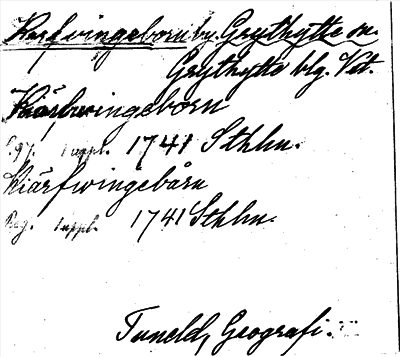 Karfvingeborn by. Grythytte sn.
Grythytte blg. Vst.
Kiärfwingeborn
1 uppl. 1741 Sthlm.
Kiärfwingebårn
Reg. 1 uppl. 1741 Sthlm.
Tuneld, Geografi.